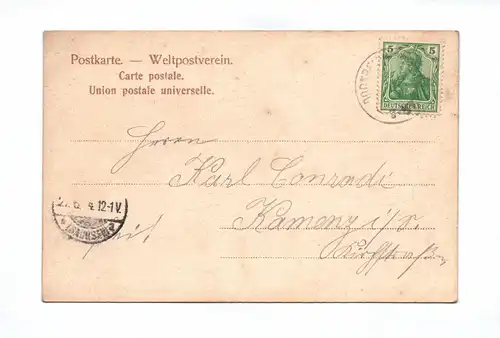 Postkarte. — Weltpostverein.
Carte postale.
Union postale universelle.
5 5
DEUTSCHES REICH
Herrn
Karl Conradi
Kamenz i/S.
6. 4. 12-1 V.
(SACHSEN)